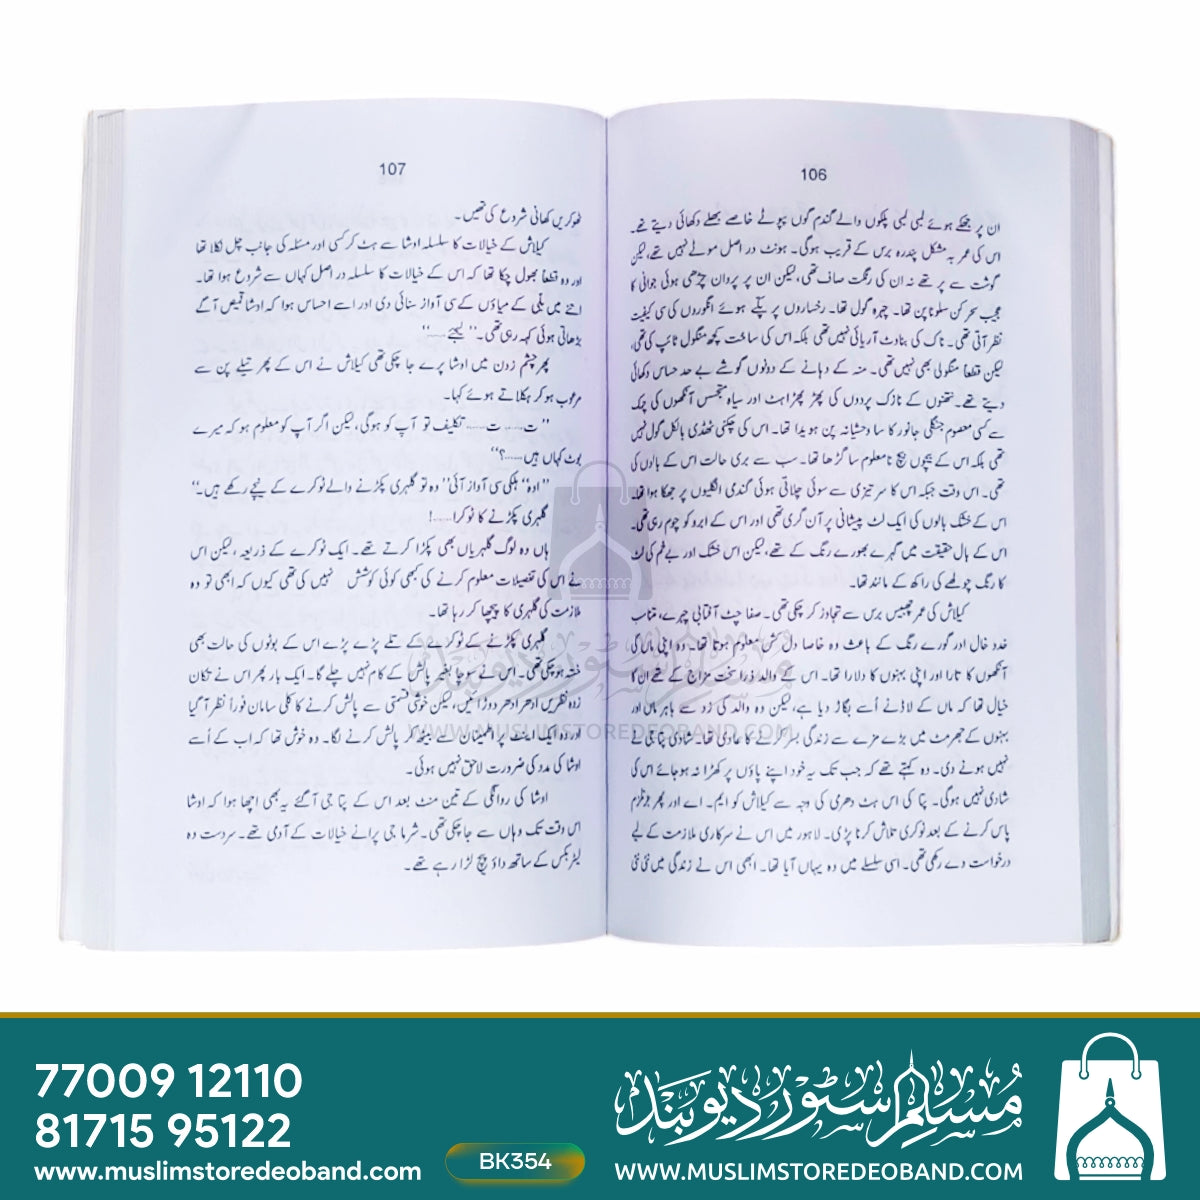 106
ان پر جھکے ہوئے لمبی لمبی پلکوں والے گندم گوں پپوٹے خاصے بھلے دکھائی دیتے تھے۔
اس کی عمر بہ مشکل پندرہ برس کے قریب ہوگی۔ ہونٹ در اصل موٹے نہیں تھے، لیکن
گوشت سے پر تھے نہ ان کی رنگت صاف تھی، لیکن ان پر پروان چڑھی ہوئی جوانی کا
عجیب سحر کن سلونا پن تھا۔ چہرہ گول تھا۔ رخساروں پر پکے ہوئے انگوروں کی سی کیفیت
نظر آتی تھی۔ ناک کی بناوٹ آریائی نہیں تھی بلکہ اس کی ساخت کچھ منگول ٹائپ کی تھی،
لیکن قطعاً منگولی بھی نہیں تھی۔ منہ کے دہانے کے دونوں گوشے بے حد حساس دکھائی
دیتے تھے۔ نتھنوں کے نازک پردوں کی پھڑ پھڑاہٹ اور سیاہ متجسس آنکھوں کی چمک
سے کسی معصوم جنگلی جانور کا سا وحشیانہ پن ہویدا تھا۔ اس کی چکنی ٹھڈی بالکل گول نہیں
تھی بلکہ اس کے بیچوں بیچ نامعلوم سا گڑھا تھا۔ سب سے بری حالت اس کے بالوں کی
تھی۔ اس وقت جبکہ اس کا سر تیزی سے سوئی چلاتی ہوئی گندی انگلیوں پر جھکا ہوا تھا۔
اس کے خشک بالوں کی ایک لٹ پیشانی پر آن گری تھی اور اس کے ابرو کو چوم رہی تھی۔
اس کے بال حقیقت میں گہرے بھورے رنگ کے تھے، لیکن اس خشک اور بے نم کی لٹ
کا رنگ چولھے کی راکھ کے مانند تھا۔
کیلاش کی عمر چھبیس برس سے تجاوز کر چکی تھی۔ صفا چٹ آفتابی چہرے، متناسب
خدو خال اور گورے رنگ کے باعث وہ خاصا دل کش معلوم ہوتا تھا۔ وہ اپنی ماں کی
آنکھوں کا تارا اور اپنی بہنوں کا دلارا تھا۔ اس کے والد ذرا سخت مزاج کے تھے ان کا
خیال تھا کہ ماں کے لاڈ نے اُسے بگاڑ دیا ہے، لیکن وہ والد کی زد سے باہر ماں اور
بہنوں کے جھرمٹ میں بڑے مزے سے زندگی بسر کرنے کا عادی تھا۔ شادی پتا جی نے
نہیں ہونے دی۔ وہ کہتے تھے کہ جب تک یہ خود اپنے پاؤں پر کھڑا نہ ہو جائے اس کی
شادی نہیں ہوگی۔ پتا کی اس ہٹ دھرمی کی وجہ سے کیلاش کو ایم۔ اے اور پھر جرنلزم
پاس کرنے کے بعد نوکری تلاش کرنا پڑی۔ لاہور میں اس نے سرکاری ملازمت کے لیے
درخواست دے رکھی تھی۔ اسی سلسلے میں وہ یہاں آیا تھا۔ ابھی اس نے زندگی میں نئی نئی
107
ٹھوکریں کھانی شروع کی تھیں۔
کیلاش کے خیالات کا سلسلہ اوشا سے ہٹ کر کسی اور مسئلہ کی جانب چل نکلا تھا
اور وہ قطعاً بھول چکا تھا کہ اس کے خیالات کا سلسلہ در اصل کہاں سے شروع ہوا تھا۔
اتنے میں بلی کے میاؤں کے سی آواز سنائی دی اور اسے احساس ہوا کہ اوشا قمیض آگے
بڑھاتی ہوئی کہہ رہی تھی۔ ’’لیجیے......‘‘
پھر چشم زدن میں اوشا پرے جا چکی تھی کیلاش نے اس کے پھر تیلے پن سے
مرعوب ہو کر ہکلاتے ہوئے کہا۔
’’ت...... ت...... تکلیف تو آپ کو ہوگی، لیکن اگر آپ کو معلوم ہو کہ میرے
بوٹ کہاں ہیں......؟‘‘
’’اوہ‘‘ ہلکی سی آواز آئی ’’وہ تو گلہری پکڑنے والے ٹوکرے کے نیچے رکھے ہیں۔‘‘
گلہری پکڑنے کا ٹوکرا......!
ہاں وہ لوگ گلہریاں بھی پکڑا کرتے تھے۔ ایک ٹوکرے کے ذریعہ، لیکن اس
نے اس کی تفصیلات معلوم کرنے کی کبھی کوئی کوشش نہیں کی تھی کیوں کہ ابھی تو وہ
ملازمت کی گلہری کا پیچھا کر رہا تھا۔
گلہری پکڑنے کے ٹوکرے کے تلے پڑے پڑے اس کے بوٹوں کی حالت بھی
خستہ ہو چکی تھی۔ اس نے سوچا بغیر پالش کے کام نہیں چلے گا۔ ایک بار پھر اس نے تکان
زدہ نظریں ادھر ادھر دوڑائیں، لیکن خوش قسمتی سے پالش کرنے کا کلی سامان فوراً نظر آ گیا
اور وہ ایک اینٹ پر اطمینان سے بیٹھ کر پالش کرنے لگا۔ وہ خوش تھا کہ اب کے اُسے
اوشا کی مدد کی ضرورت لاحق نہیں ہوئی۔
اوشا کی روانگی کے تین منٹ بعد اس کے پتا جی آ گئے یہ بھی اچھا ہوا کہ اوشا
اس وقت تک وہاں سے جا چکی تھی۔ شرما جی پرانے خیالات کے آدمی تھے۔ سردست وہ
لیٹر بکس کے ساتھ داؤ پیچ لڑا رہے تھے۔
مسلم سٹور دیوبند
WWW.MUSLIMSTOREDEOBAND.COM
77009 12110
81715 95122
www.muslimstoredeoband.com
BK354
مسلم سٹور دیوبند
WWW.MUSLIMSTOREDEOBAND.COM